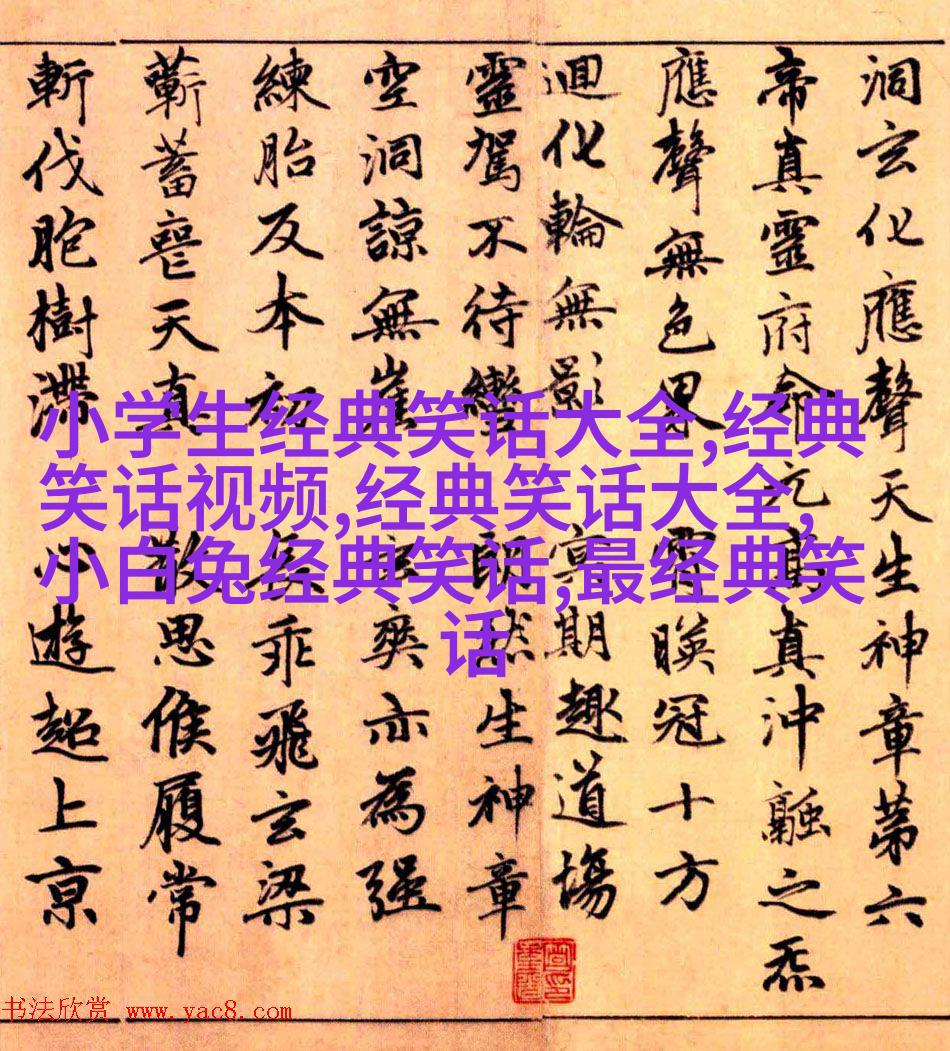 洞玄化應聲天生神章第六
帝真靈府命元高真沖融之炁
應聲無色界 霄暎冠十方
迴化輪無影 冥期趣道場
靈駕不待轡 朗然生神章
空洞諒無崖 玄爽亦為强
練胎反本初 長乖飛玄梁
蘄蓄喪天真 散思候履常
斬伐胞樹滯 心遊超上京
小学生经典笑话大全,经典
笑话视频,经典笑话大全,
小白兔经典笑话,最经典笑
话
书法欣赏 www.yac8.com